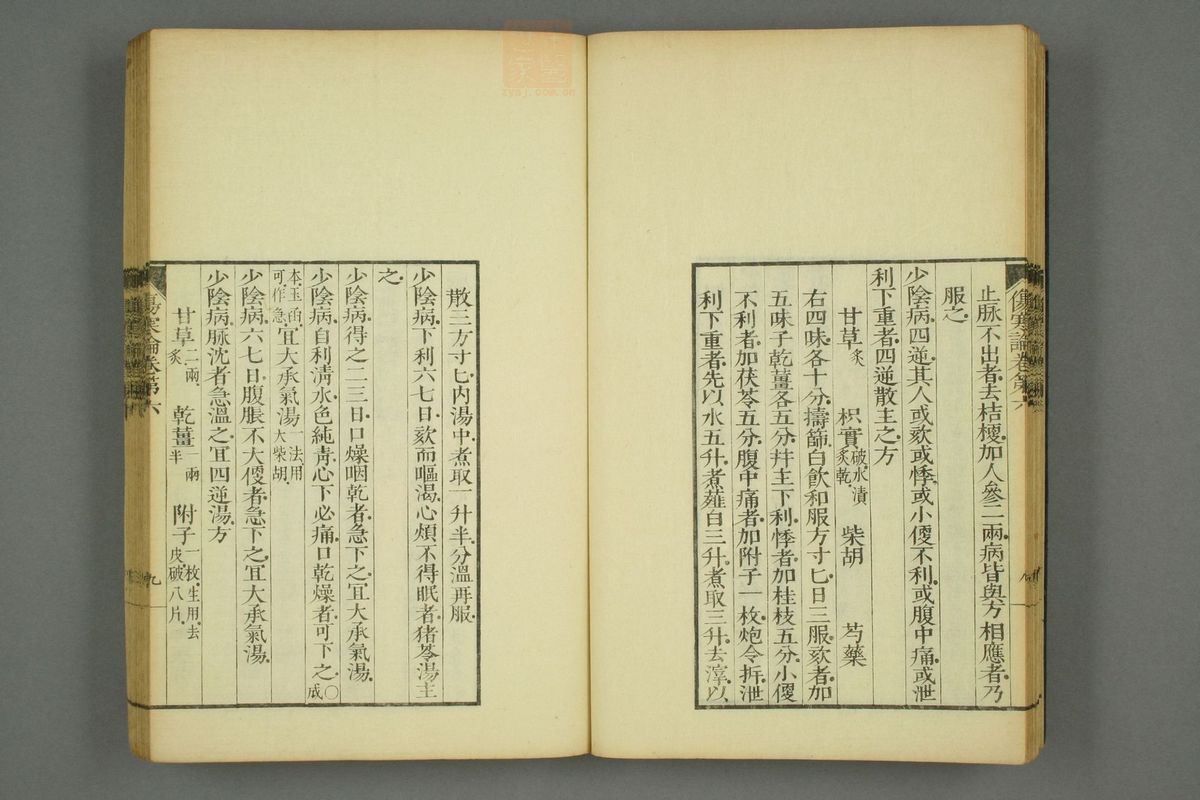 止脉不出者去桔梗加人參二兩病皆與方相應者乃
服之
少陰病四逆其人或欬或悸或小便不利或腹中痛或泄
利下重者四逆散主之方
甘草炙 枳實破水漬炙乾 柴胡 芍藥
右四味各十分擣篩白飲和服方寸匕日三服欬者加
五味子乾薑各五分幷主下利悸者加桂枝五分小便
不利者加茯苓五分腹中痛者加附子一枚炮令拆泄
利下重者先以水五升煮薤白三升煮取三升去滓以
散三方寸匕內湯中煮取一升半分溫再服
少陰病下利六七日欬而嘔渴心煩不得眠者猪苓湯主
之
少陰病得之二三日口燥咽乾者急下之宜大承氣湯
少陰病自利淸水色純靑心下必痛口乾燥者可下之〇成
本玉函可作急宜大承氣湯一法用大柴胡
少陰病六七日腹脹不大便者急下之宜大承氣湯
少陰病脉沈者急溫之宜四逆湯方
甘草二兩炙 乾薑一兩半 附子一枚生用去皮破八片
傷寒論卷第六
九
傷寒論卷第六
zysj.com.cn